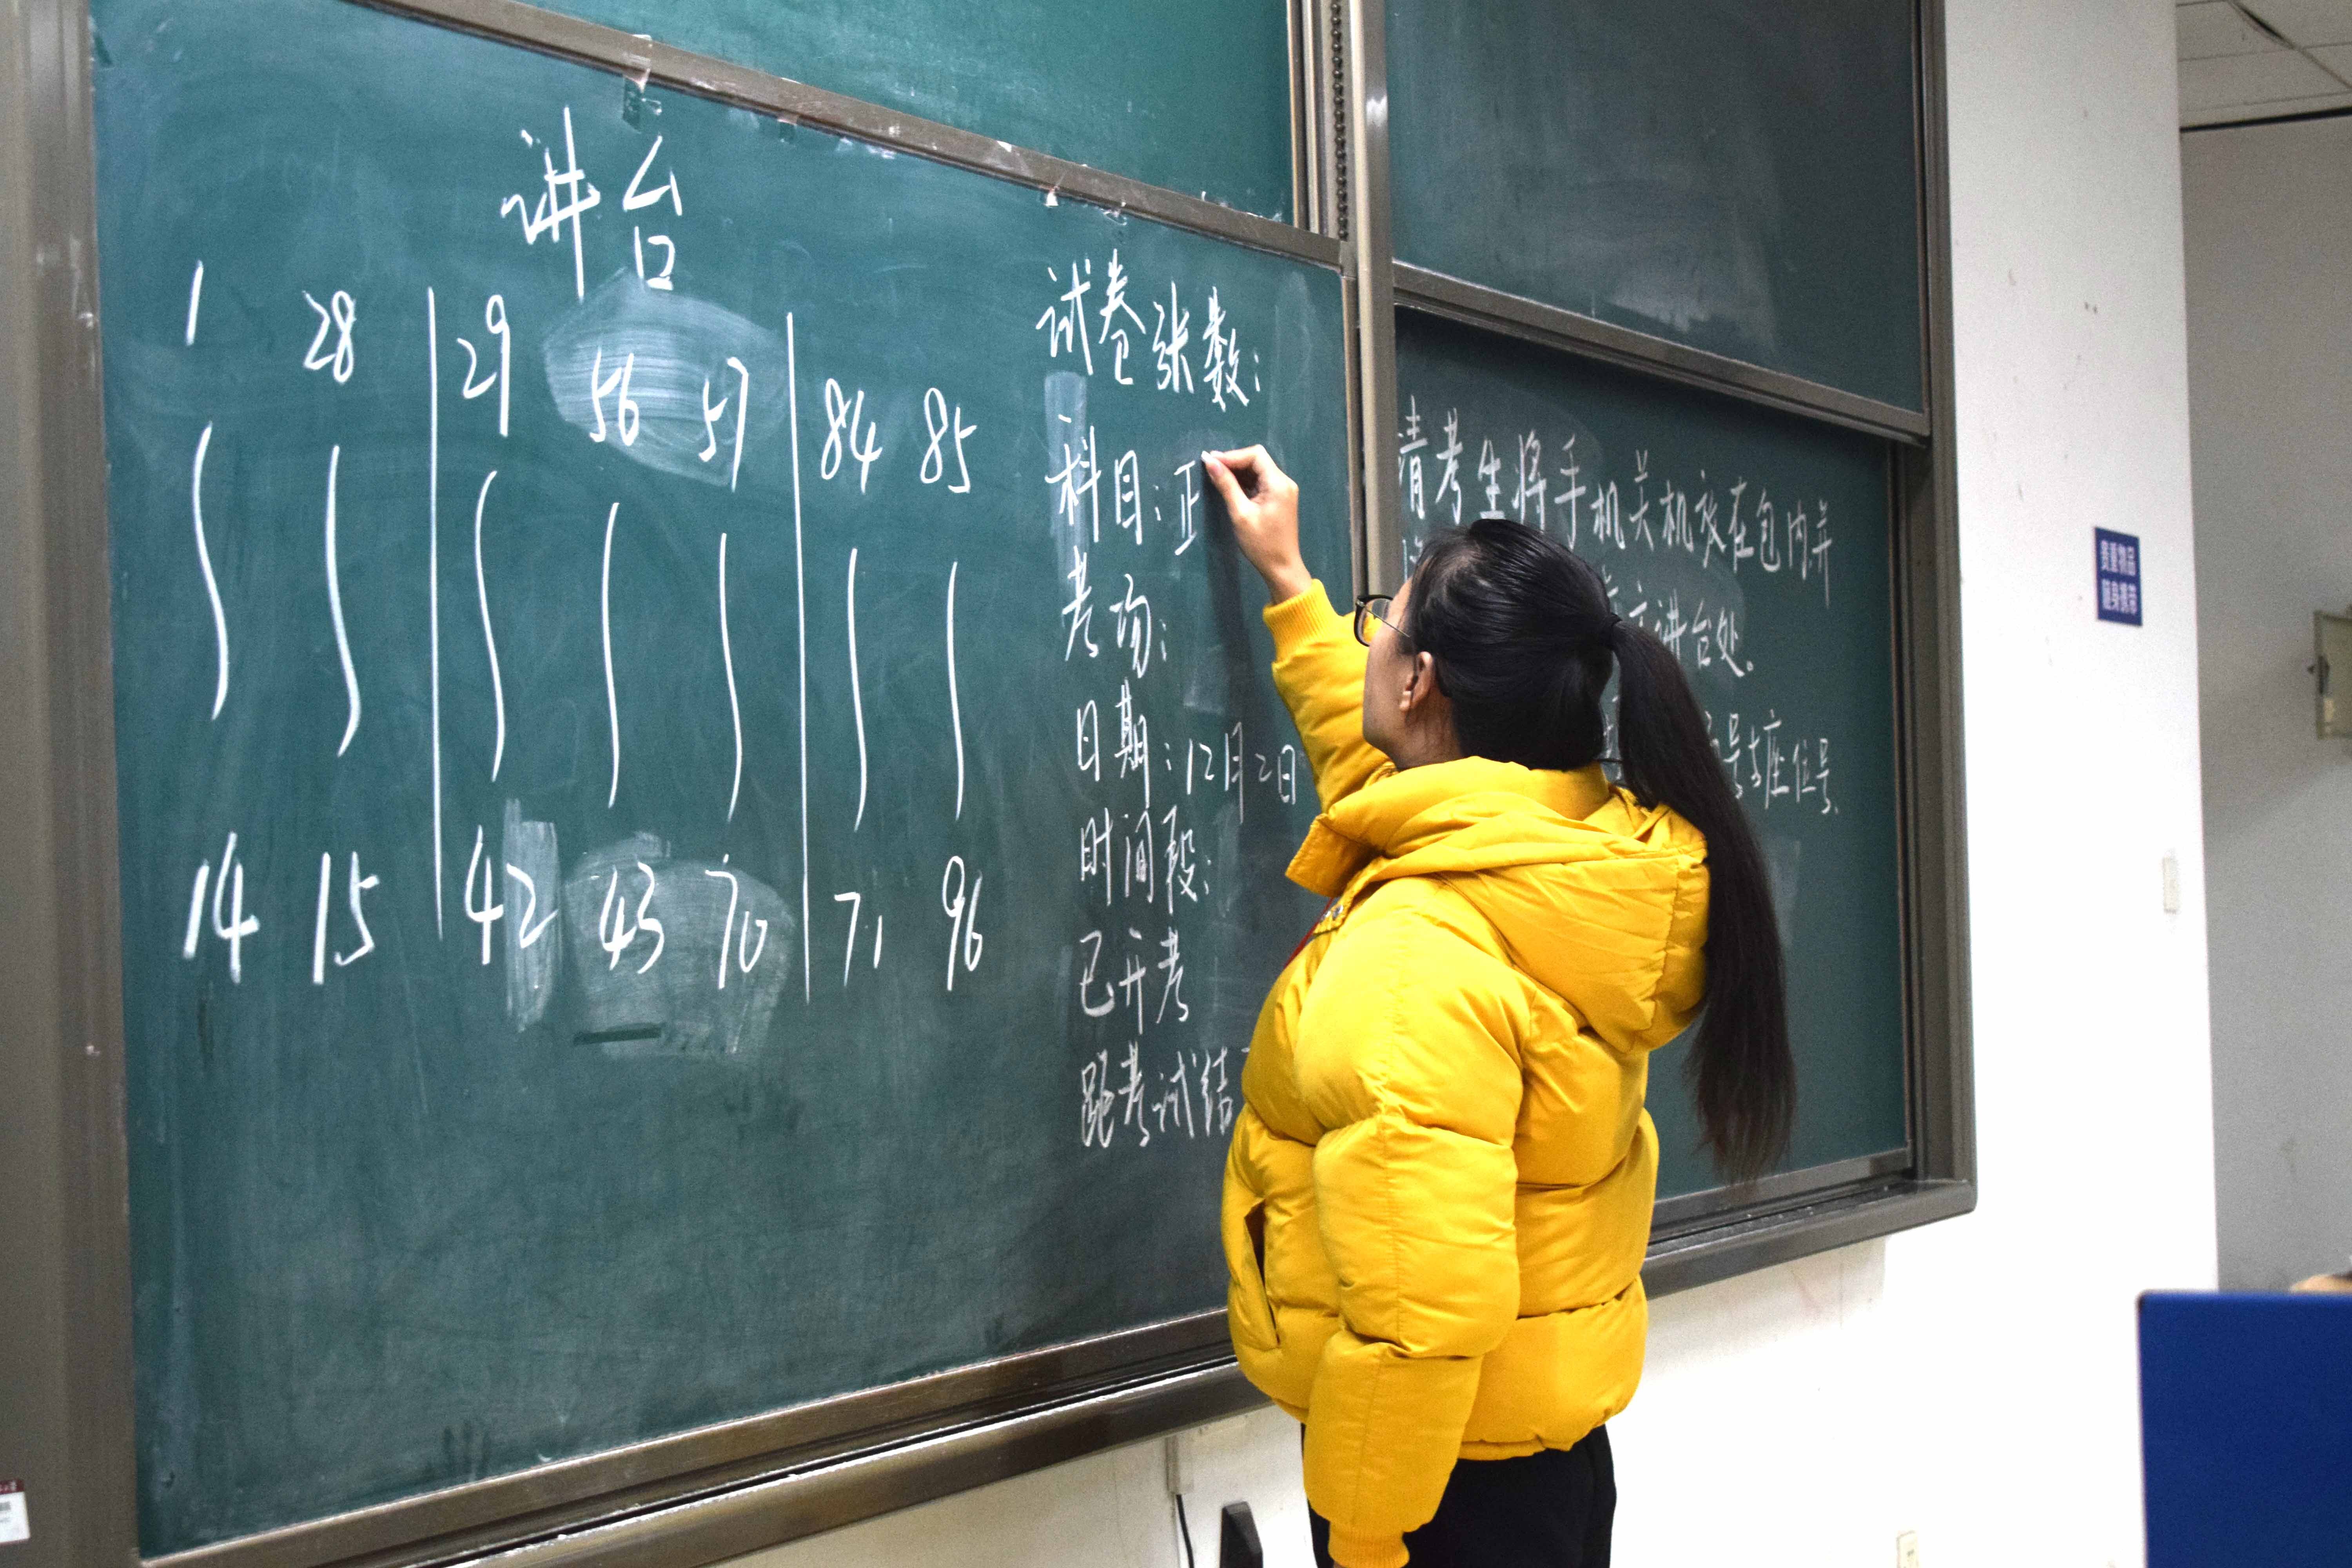 讲台
1 28 29 56 57 84 85
14 15 42 43 70 71 96
试卷张数:
科目:正
考场:
日期:12月2日
时间段:
已开考
距考试结
请考生将手机关机放在包内并
讲台处。
号与座位号
贵重物品
随身携带